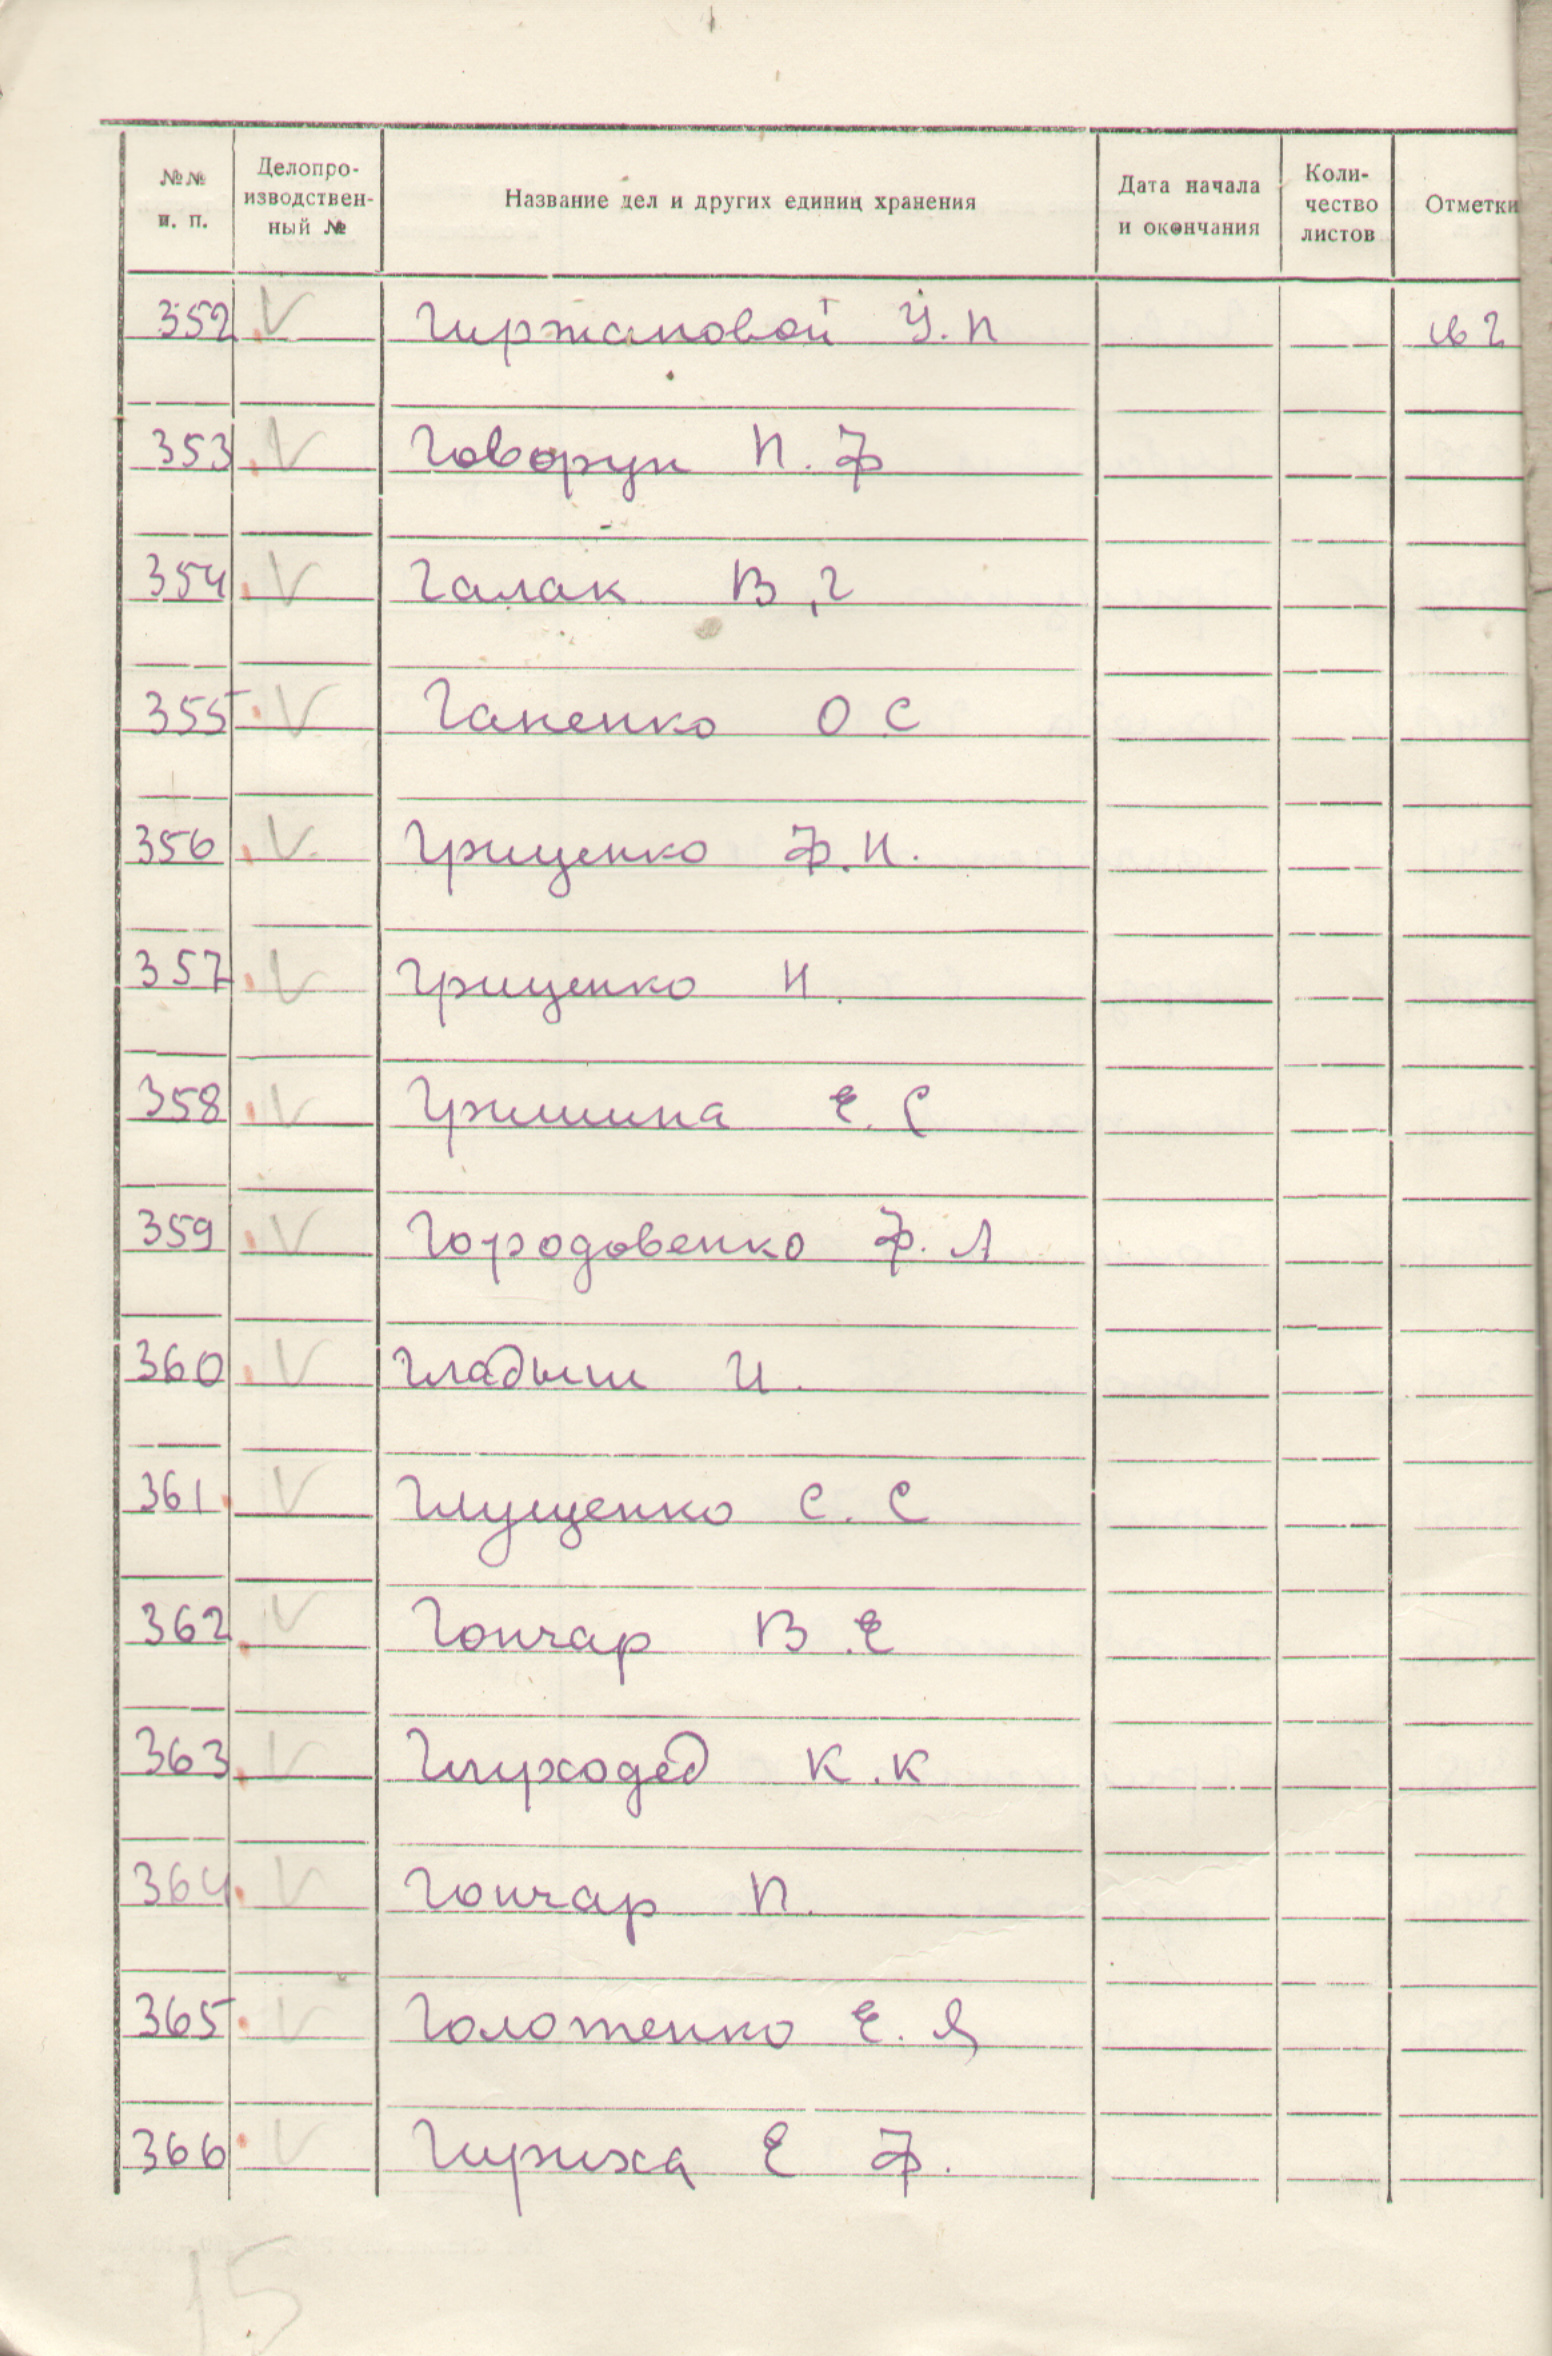 №№ п. п. Делопро-изводствен-ный № Название дел и других единиц хранения Дата начала и окончания Коли-чество листов Отметки
352 V Гиржановой У. П
353 V Говорун П. Ф
354 V Галак В, Г
355 V Ганенко О С
356 V Гриценко Ф. И.
357 V Гриценко И.
358 V Гришина Е. С
359 V Городовенко Ф. Л
360 V Гладыш И.
361 V Глущенко С. С
362 V Гончар В. Е
363 V Глуходед К. К
364 V Гончар П.
365 V Голотенко Е. Я
366 V Е Ф.
15